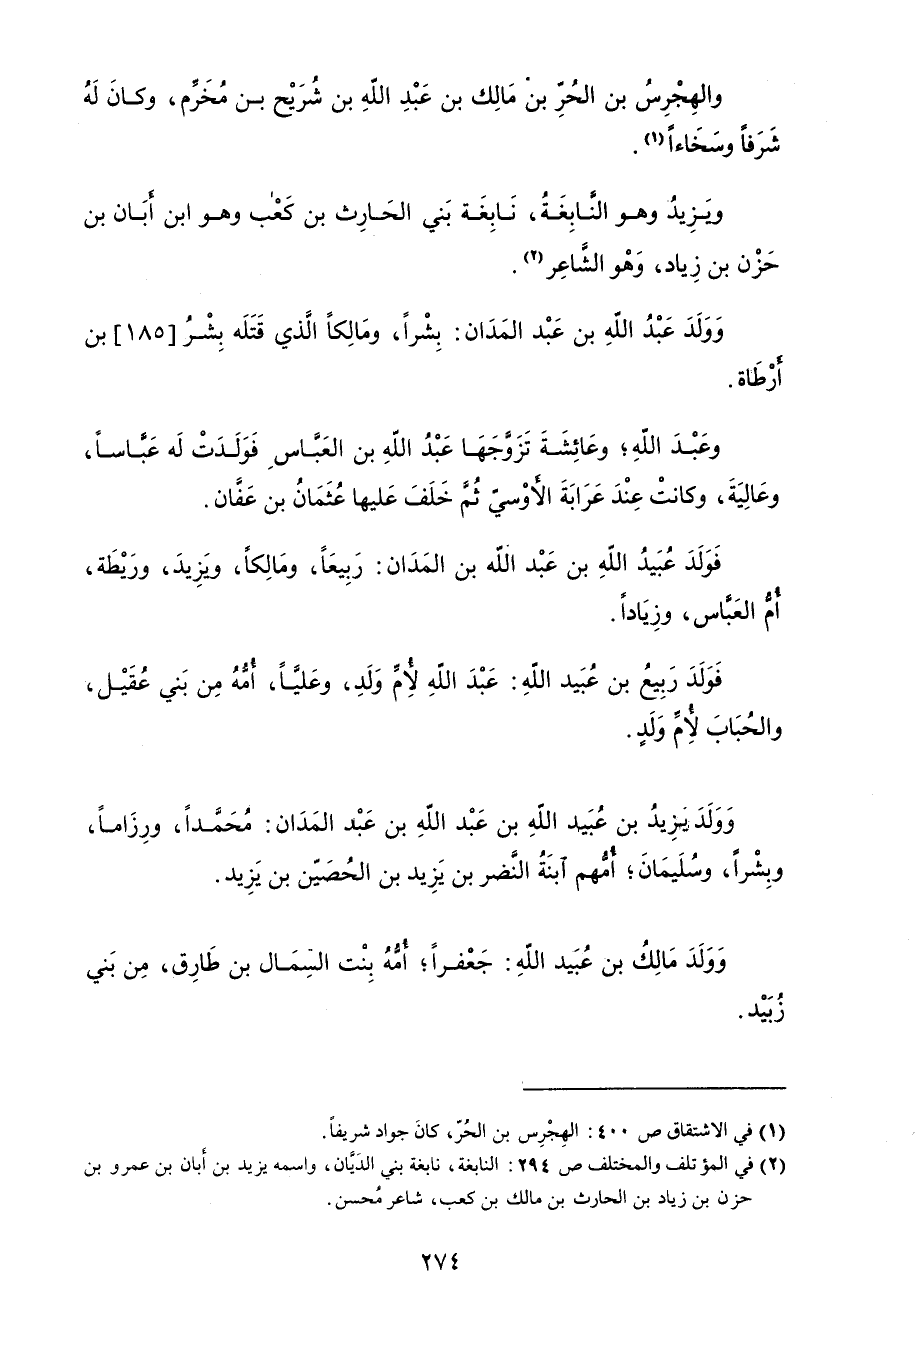 والهِجْرِسُ بن الحُرِّ بن مَالِك بن عَبْدِ اللّهِ بن شُرَيْح بـن مُخَرِّم، وكـانَ لَهُ
شَرَفاً وسَخَاءاً(١).
ويَـزِيدُ وهـو النَّـابِغَـةُ، نَـابِغَـة بَني الحَـارِث بن كَعْب وهـو ابن أَبَـان بن
حَزْن بن زِياد، وَهْو الشَّاعِر(٢).
وَوَلَدَ عَبْدُ اللّهِ بن عَبْد المَدَان: بِشْراً، ومَالِكاً الَّذي قَتَلَه بِشْـرُ [١٨٥] بن
أَرْطَاة.
وعَبْـدَ اللّهِ؛ وعَائِشَـةَ تَزَوَّجَهَـا عَبْدُ اللّهِ بن العَبَّـاسِ فَوَلَـدَتْ لَه عَبَّـاسـاً،
وعَالِيَةَ، وكانتْ عِنْدَ عَرَابَةَ الأَوْسيّ ثُمَّ خَلَفَ عَليها عُثمَانُ بن عَفَّان.
فَوَلَدَ عُبَيدُ اللّهِ بن عَبْد الله بن المَدَان: رَبِيعَاً، ومَالِكاً، ويَزِيدَ، ورَيْطَة،
أُمُّ العَبَّاس، وزِيَاداً.
فَوَلَدَ رَبِيعُ بن عُبَيد اللّهِ: عَبْدَ اللّهِ لأُمِّ وَلَدِ، وعَليَّـاً، أُمُّهُ مِن بَني عُقَيْـل،
والحُبَابَ لأُمِّ وَلَدٍ.
وَوَلَدَ يَزِيدُ بن عُبَيد اللّهِ بن عَبْد اللّهِ بن عَبْد المَدَان: مُحَمَّـداً، ورِزَامـاً،
وبِشْراً، وسُلَيمَانَ؛ أُمُّهم ٱبنَةُ النَّضر بن يَزِيد بن الحُصَيّن بن يَزِيد.
وَوَلَدَ مَالِكُ بن عُبَيد اللّهِ: جَعْفـراً؛ أُمُّهُ بِنْت السِّمَـال بن طَارِق، مِن بَني
زُبَيْد.
(١) في الاشتقاق ص ٤٠٠: الهِجْرِس بن الحُرّ، كانَ جواد شريفاً.
(٢) في المؤتلف والمختلف ص ٢٩٤: النابغة، نابغة بني الدَيَّان، واسمه يزيد بن أَبان بن عمرو بن
حزن بن زياد بن الحارث بن مالك بن كعب، شاعر مُحسن.
٢٧٤